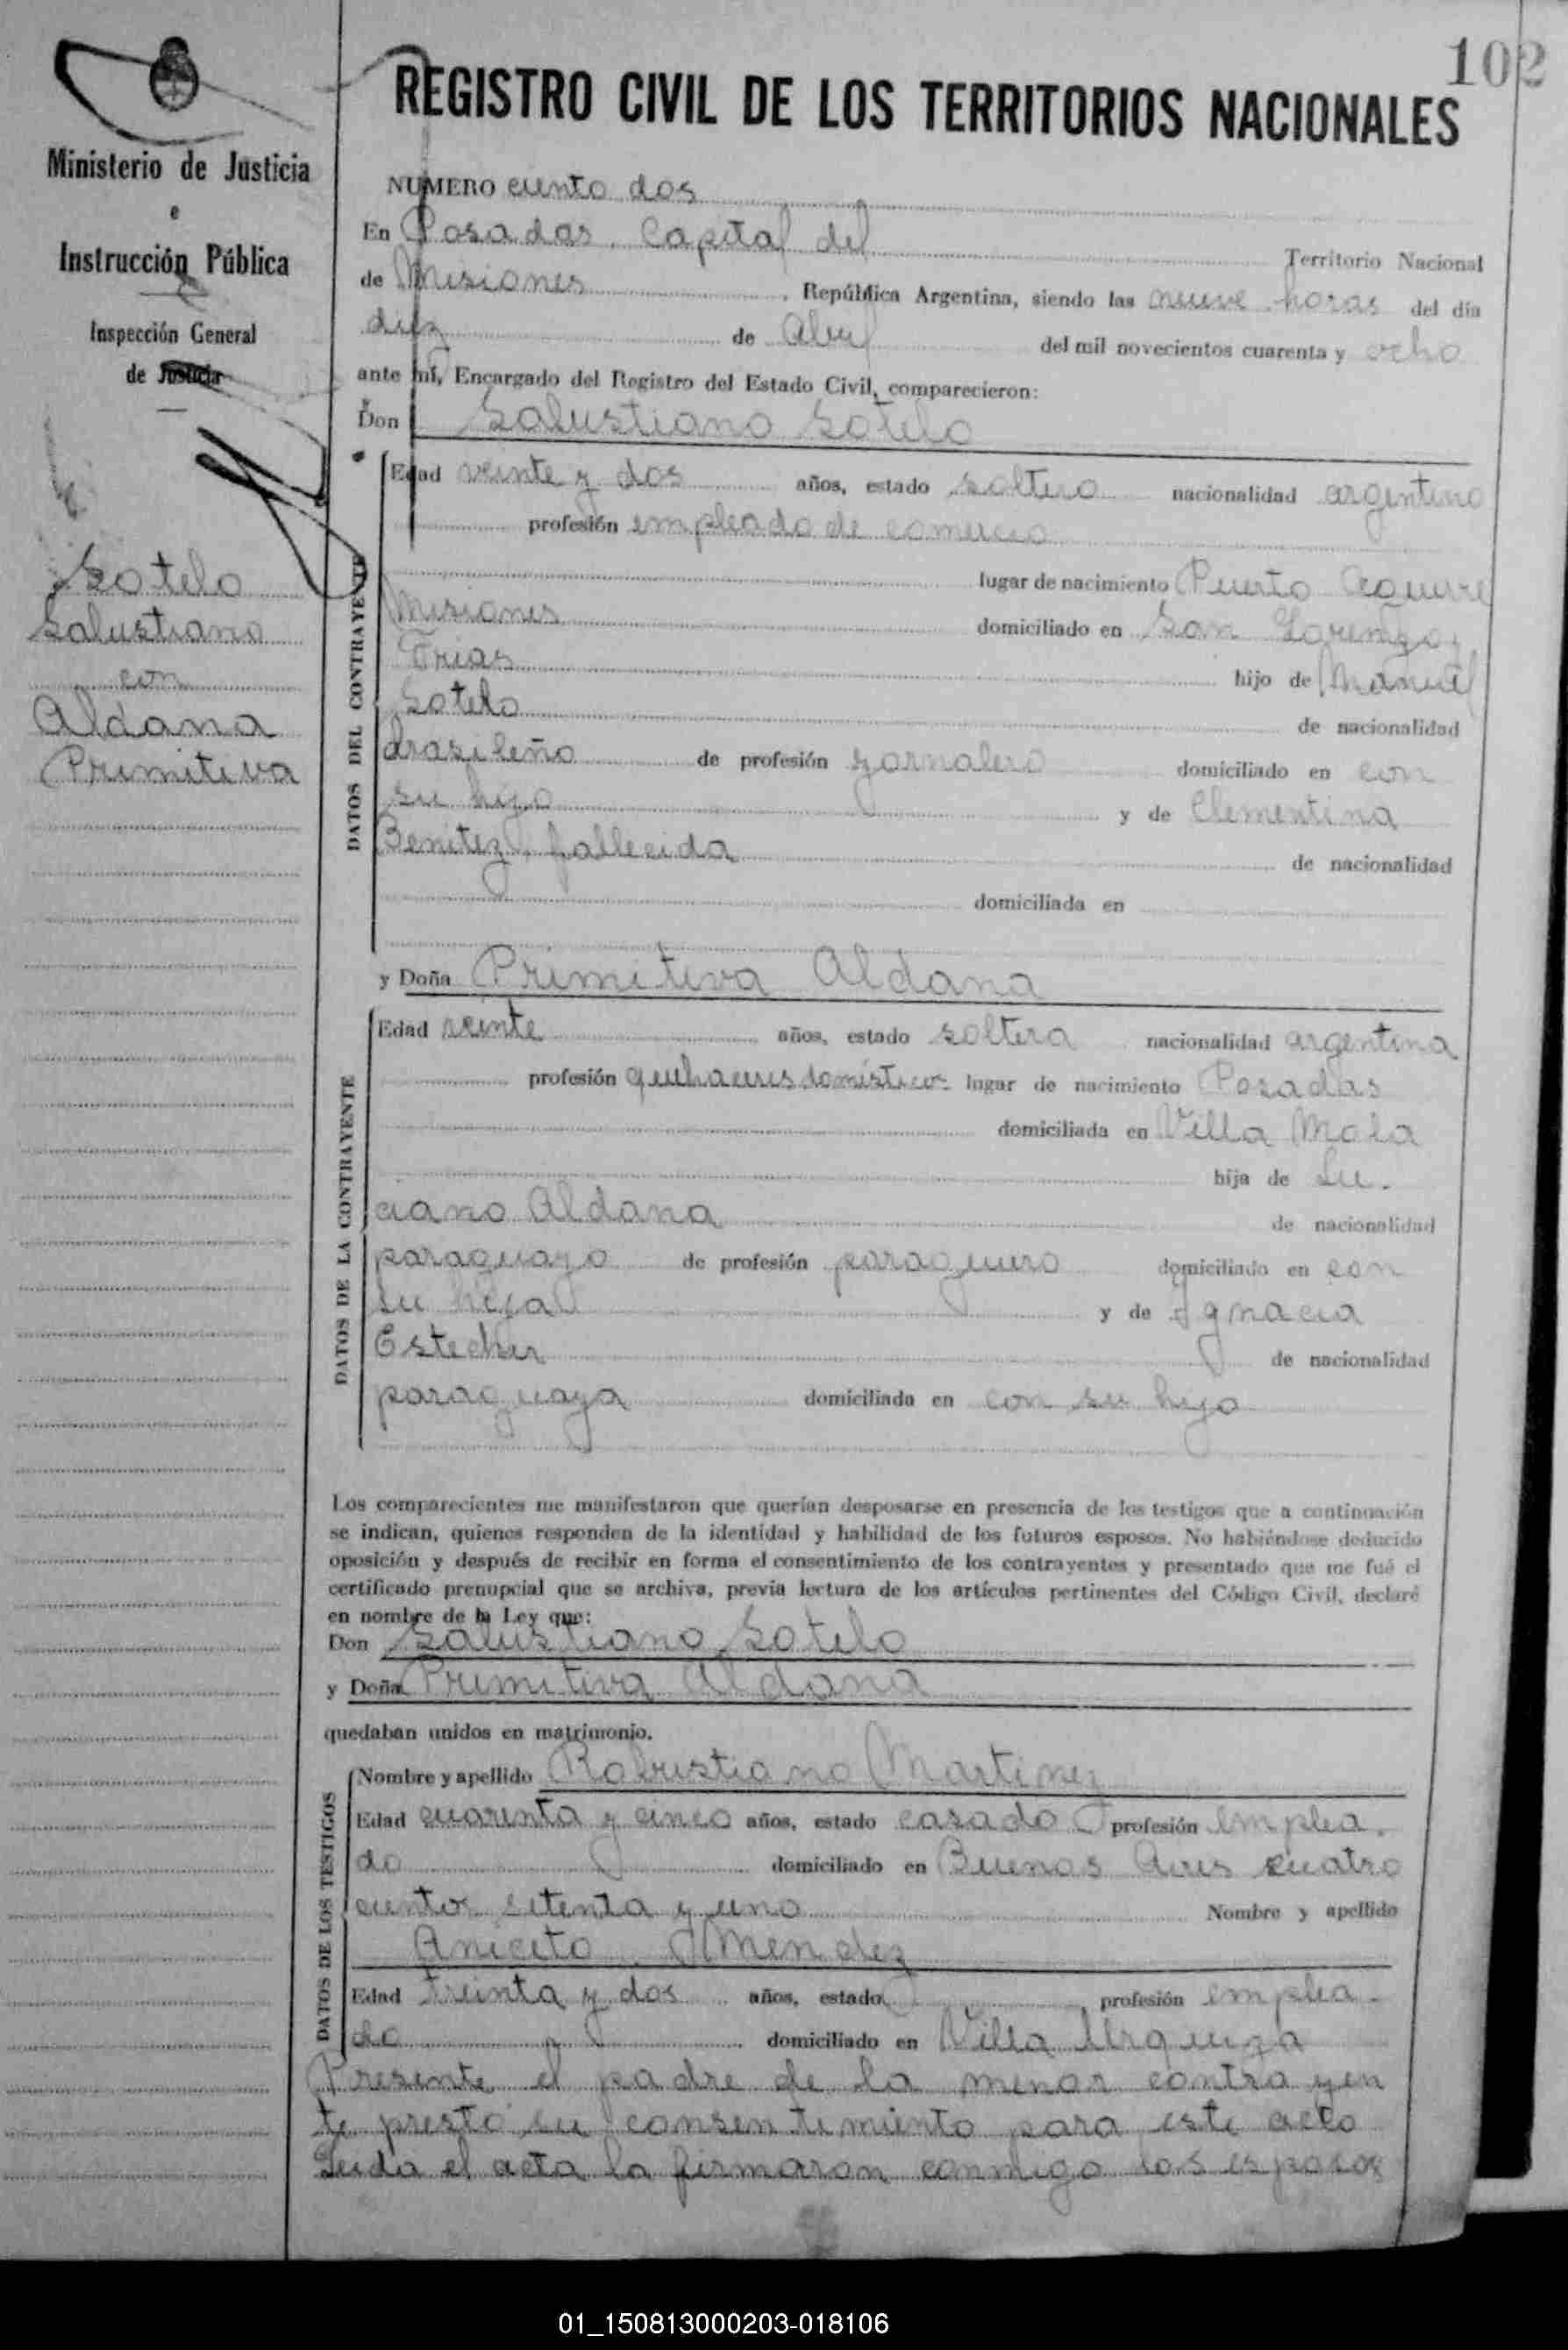 102
REGISTRO CIVIL DE LOS TERRITORIOS NACIONALES
Ministerio de Justicia
e
Instrucción Pública
Inspección General
de Justicia
Sotelo
Salustiano
con
Aldana
Primitiva
NUMERO ciento dos
En Posadas, Capital del Territorio Nacional
de Misiones, República Argentina, siendo las nueve horas del día
diez de Abril del mil novecientos cuarenta y ocho
ante mí, Encargado del Registro del Estado Civil, comparecieron:
Don Salustiano Sotelo
DATOS DEL CONTRAYENTE
Edad veinte y dos años, estado soltero nacionalidad argentino
profesión empleado de comercio
lugar de nacimiento Puerto Aguirre
Misiones domiciliado en San Lorenzo,
Frias hijo de Manuel
Sotelo de nacionalidad
brasileño de profesión jornalero domiciliado en con
su hijo y de Clementina
Benitez, fallecida de nacionalidad
domiciliada en
y Doña Primitiva Aldana
DATOS DE LA CONTRAYENTE
Edad veinte años, estado soltera nacionalidad argentina
profesión quehaceres domésticos lugar de nacimiento Posadas
domiciliada en Villa Mola
hija de Lu-
ciano Aldana de nacionalidad
paraguayo de profesión paraguero domiciliado en con
su hija y de Ygnacia
Estecher de nacionalidad
paraguaya domiciliada en con su hijo
Los comparecientes me manifestaron que querían desposarse en presencia de los testigos que a continuación
se indican, quienes responden de la identidad y habilidad de los futuros esposos. No habiéndose deducido
oposición y después de recibir en forma el consentimiento de los contrayentes y presentado que me fué el
certificado prenupcial que se archiva, previa lectura de los artículos pertinentes del Código Civil, declaré
en nombre de la Ley que:
Don Salustiano Sotelo
y Doña Primitiva Aldana
quedaban unidos en matrimonio.
DATOS DE LOS TESTIGOS
Nombre y apellido Robustiano Martinez
Edad cuarenta y cinco años, estado casado profesión emplea-
do domiciliado en Buenos Aires cuatro
cientos setenta y uno Nombre y apellido
Aniceto Mendez
Edad treinta y dos años, estado profesión emplea-
do domiciliado en Villa Urquiza
Presente el padre de la menor contrayen
te prestó su consentimiento para este acto
Leida el acta la firmaron conmigo los esposos
01_150813000203-018106